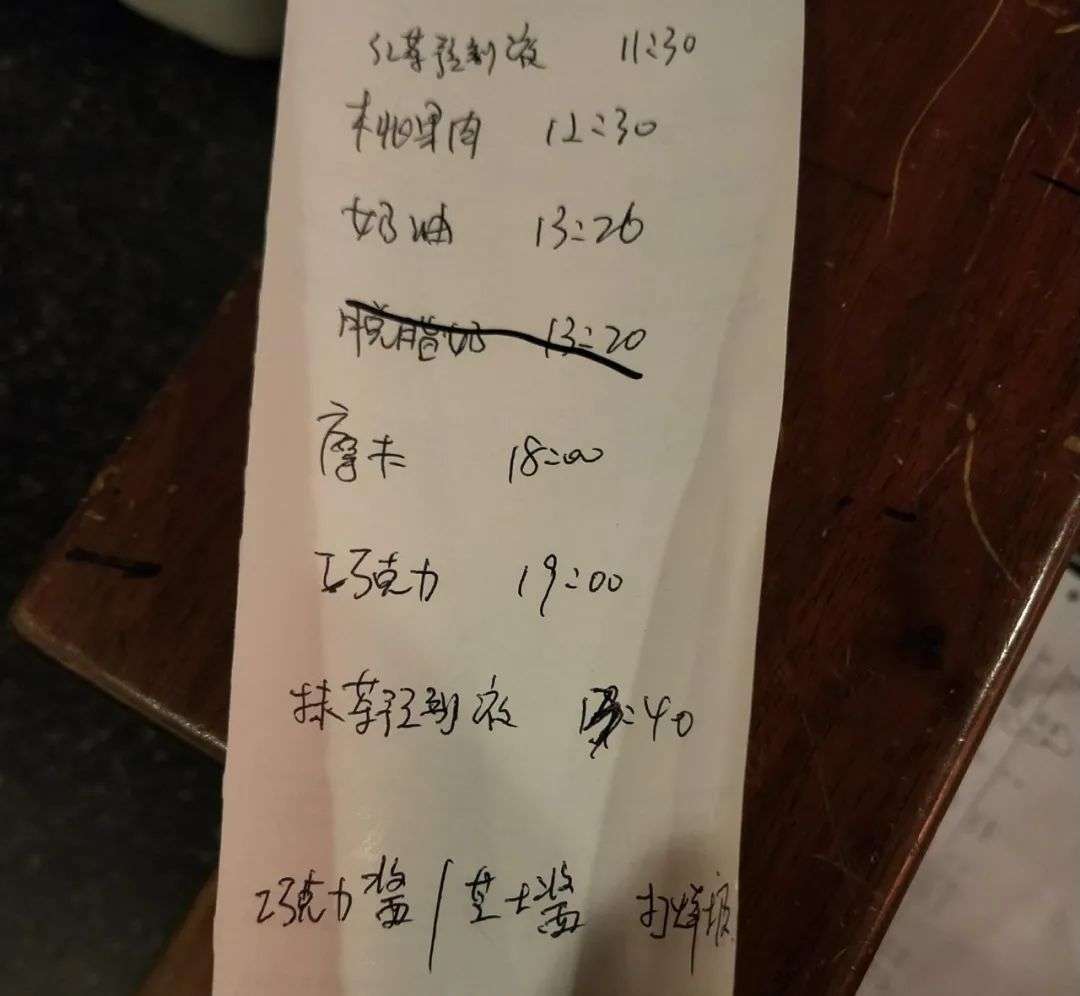 红茶预制液 11:30
桃果肉 12:30
奶油 13:26
脱脂奶 13:20
摩卡 18:00
巧克力 19:00
抹茶预制液 :40
巧克力酱/芝士酱 打烊报